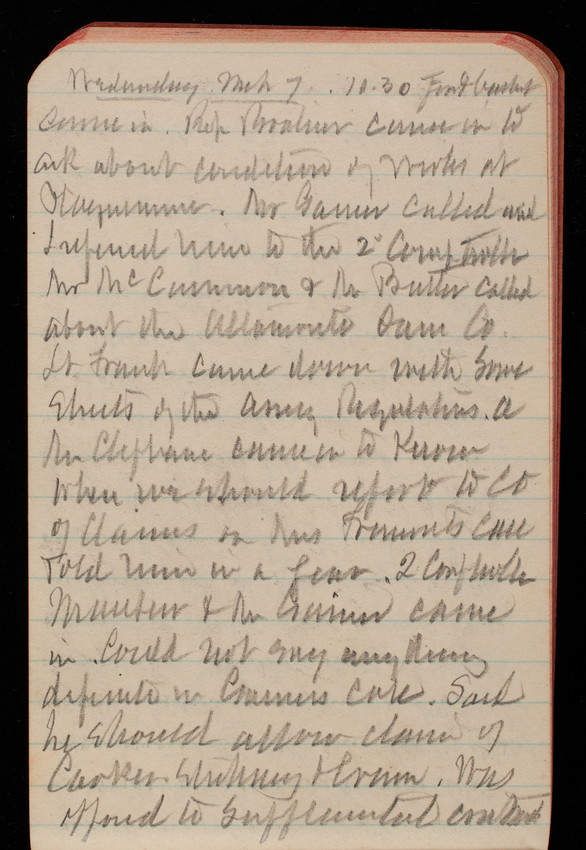 Wednesday Mch 7. 10.30
came in. Rep came in to
ask about condition of works at
Plaquemine. Mr Gaines called and
I referred him to the 2d Comptroller
Mr McCammon & Mr Butler called
about the Altamonte Dam Co.
Lt. Frank came down with some
Sheets of the Army Regulations. A
Mr Clephane came in to Know
when we should report to Ct
of Claims on Mrs Fremonts case
Told him in a year. 2 Comptroller
& Mr Gaines came
in. Could not say anything
definite in Gaines case. Said
he should allow claim of
& . Was
opposed to supplemental contract